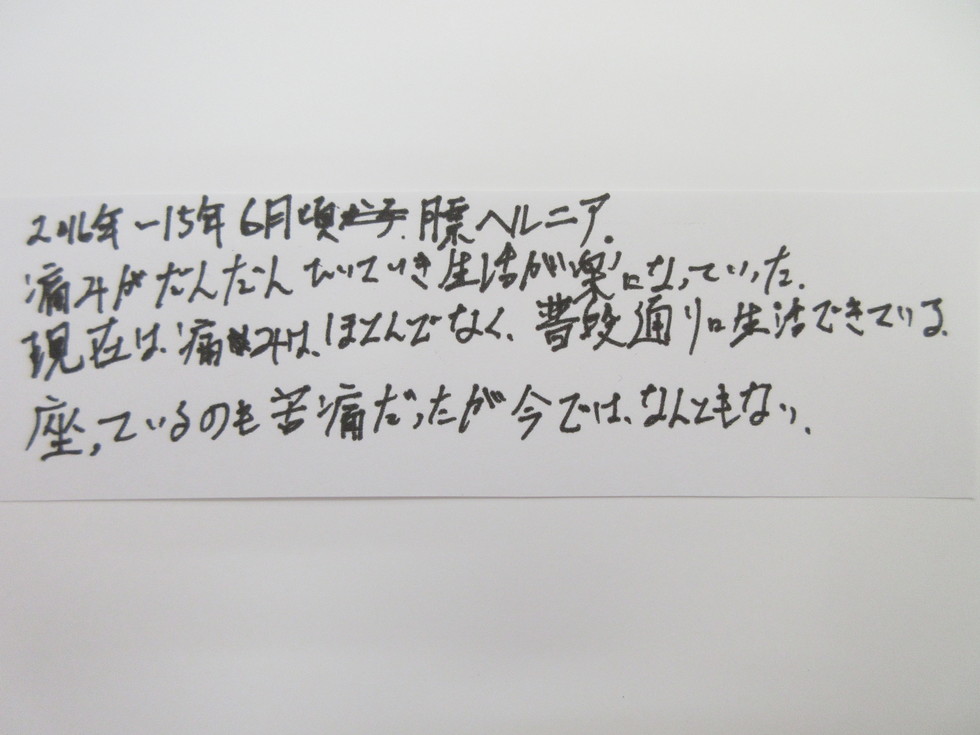 2016年-15年6月頃 腰ヘルニア.
痛みがだんだんひいていき生活が楽になっていった.
現在は、痛みは、ほとんどなく、普段通りに生活できている.
座っているのも苦痛だったが今では、なんともない.